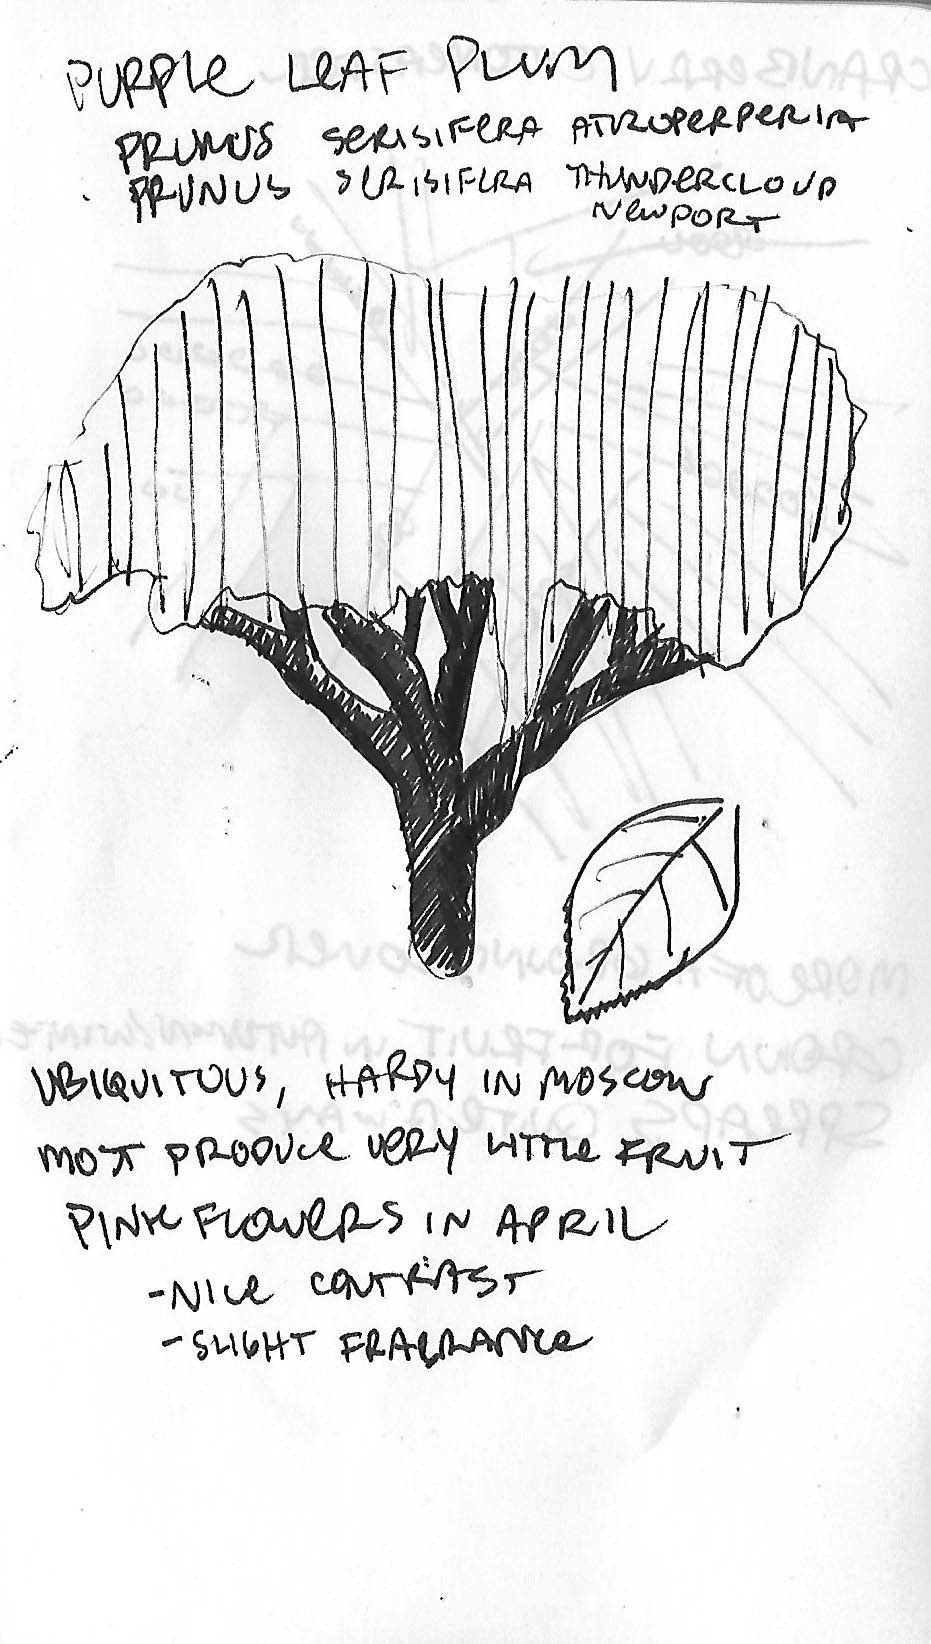 PURPLE LEAF PLUM
PRUNUS SERISIFERA ATROPERPERIA
PRUNUS SERISIFERA THUNDERCLOUD
NEWPORT
UBIQUITOUS, HARDY IN MOSCOW
MOST PRODUCE VERY LITTLE FRUIT
PINK FLOWERS IN APRIL
-NICE CONTRAST
-SLIGHT FRAGRANCE